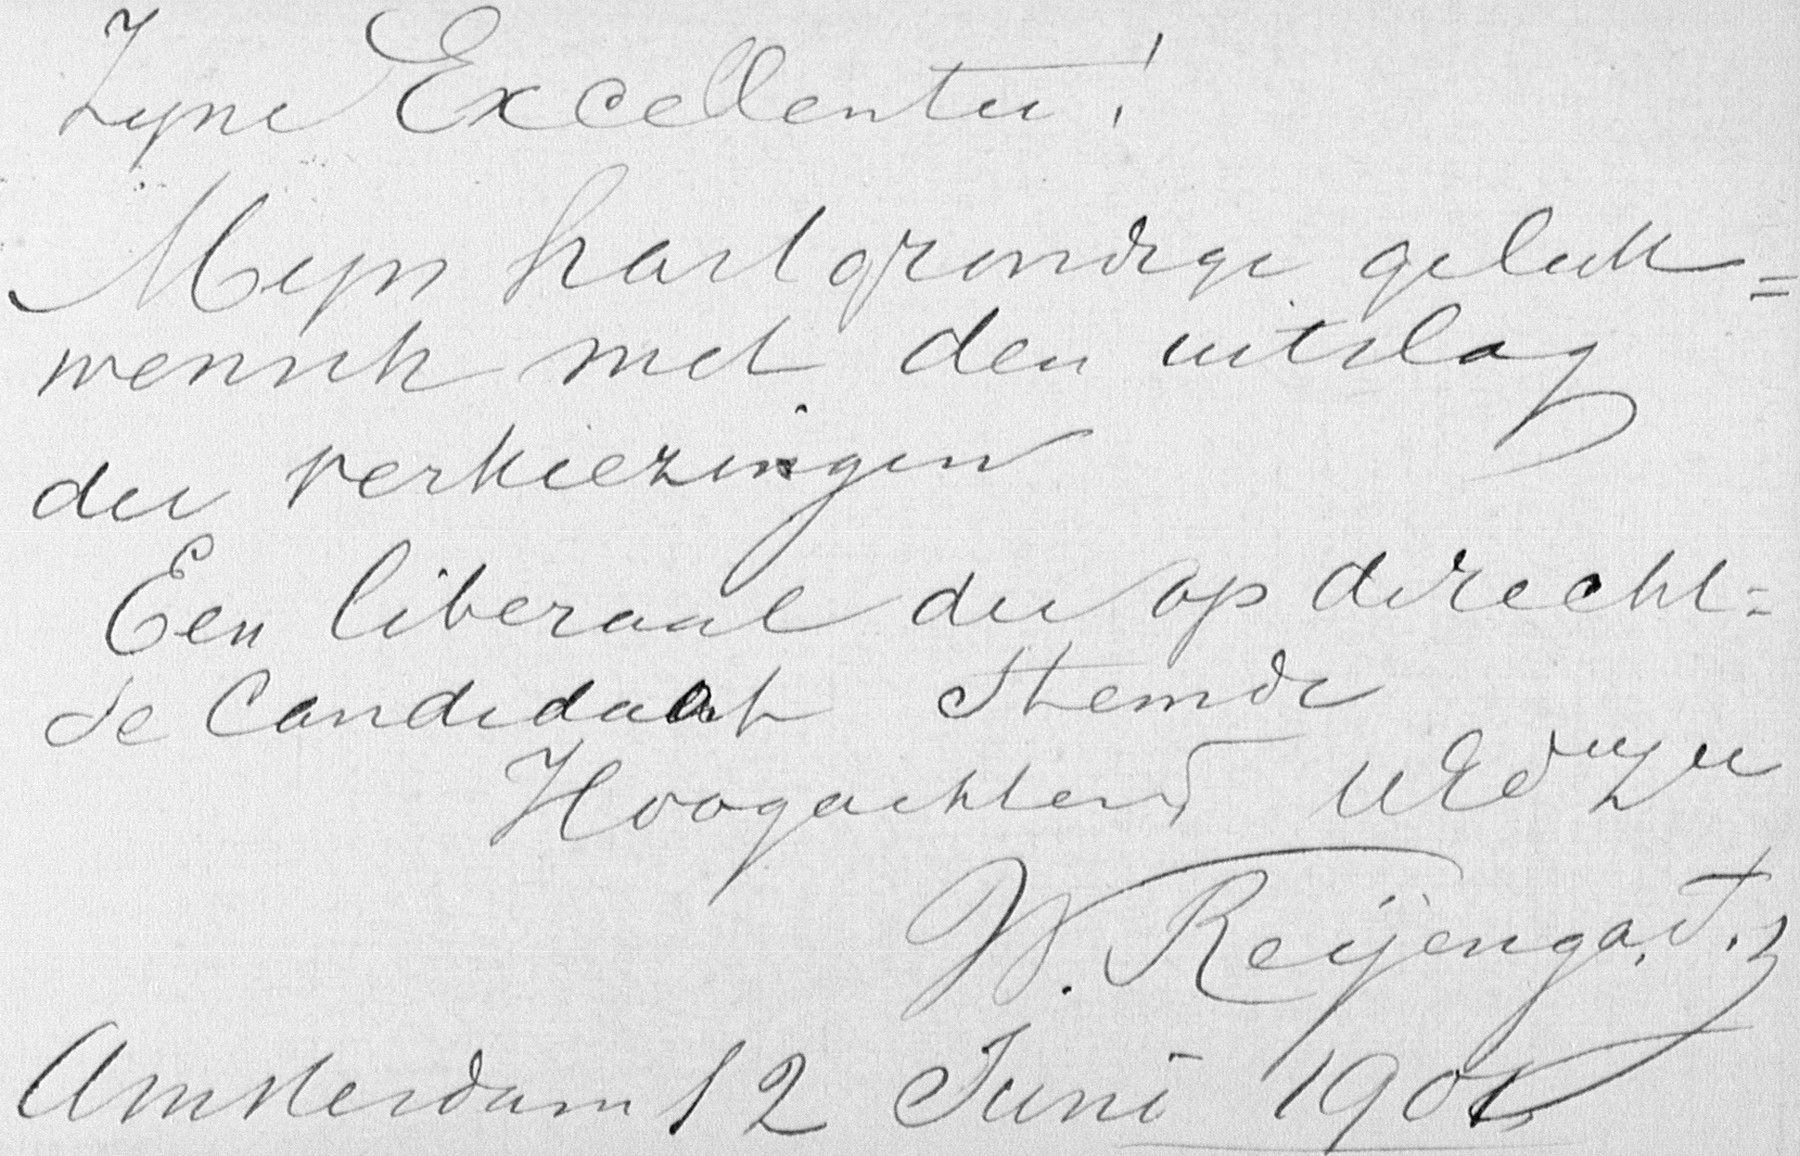 Zyne Excellentie!
Mijn hartgrondige geluk=
wensch met den uitslag
der verkiezingen
Een liberaal die op d recht=
se Candidaat stemde
Hoogachtend UEd
W. Reijenga.
Amsterdam 12 Juni 1901